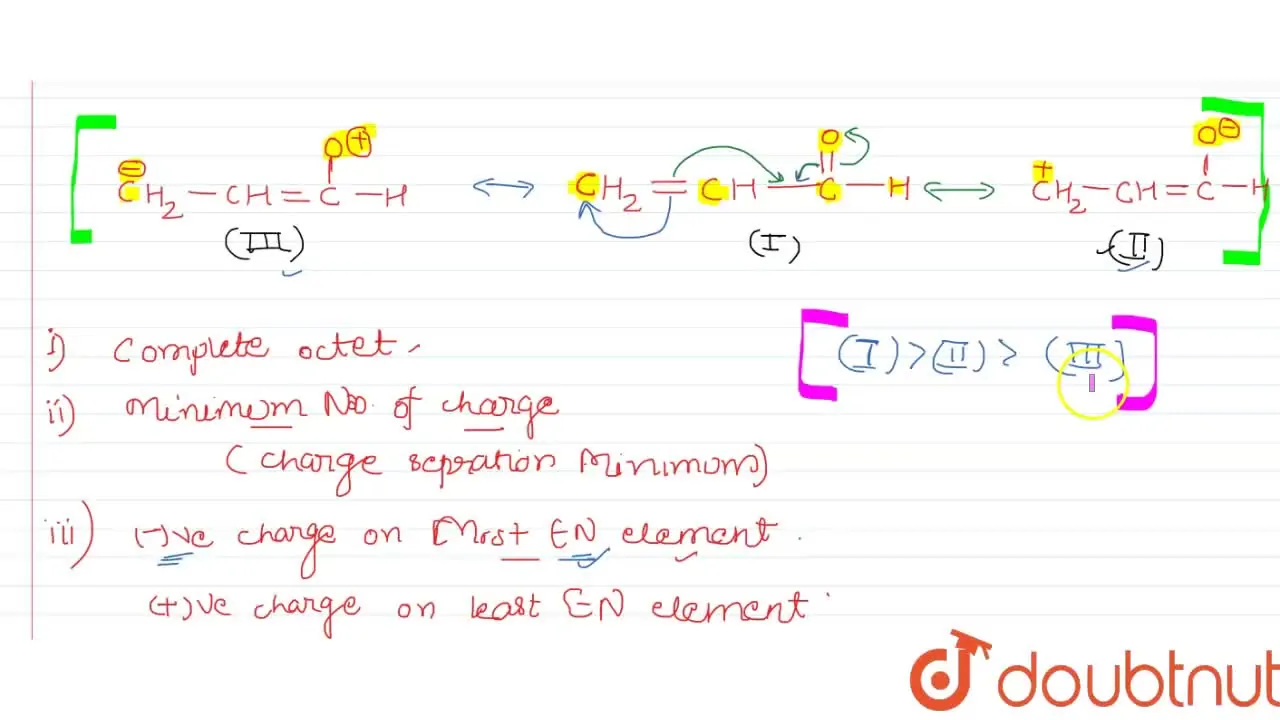 ⊖CH₂ — CH = C(O⊕) — H ⟷ CH₂ = CH — C(=O) — H ⟷ +CH₂ — CH = C(O⊖) — H
(III) (I) (II)
i) Complete octet
(I) > (II) > (III)
ii) Minimum No. of charge
(charge sepration Minimum)
iii) (-)ve charge on Most EN element.
(+)ve charge on least EN element.
doubtnut